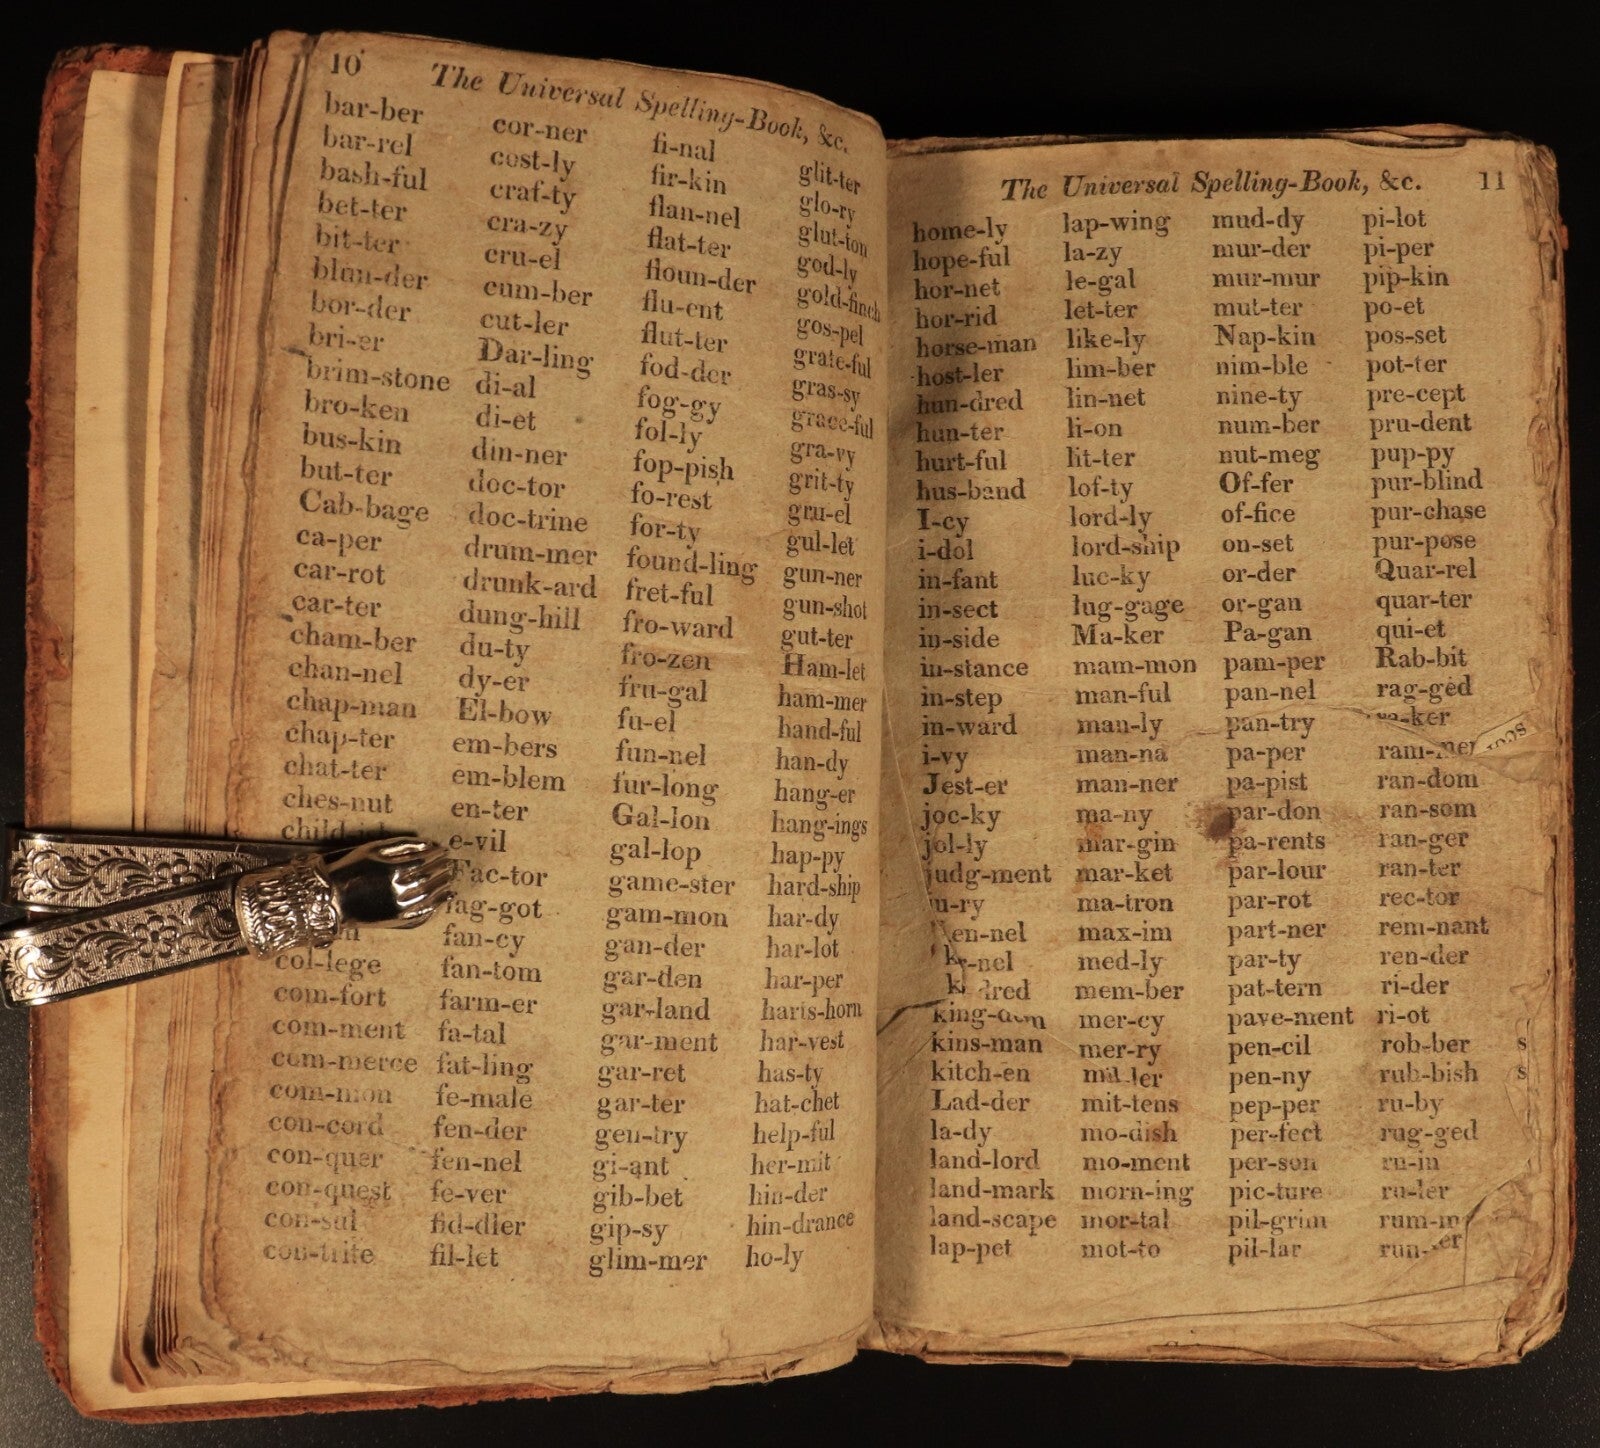 10
The Universal Spelling-Book, &c.
bar-ber
bar-rel
bash-ful
bet-ter
bit-ter
blun-der
bor-der
bri-er
brim-stone
bro-ken
bus-kin
but-ter
Cab-bage
ca-per
car-rot
car-ter
cham-ber
chan-nel
chap-man
chap-ter
chat-ter
ches-nut
col-lege
com-fort
com-ment
com-merce
com-mon
con-cord
con-quer
con-quest
con-sul
con-trite
cor-ner
cost-ly
craf-ty
cra-zy
cru-el
cum-ber
cut-ler
Dar-ling
di-al
di-et
din-ner
doc-tor
doc-trine
drum-mer
drunk-ard
dung-hill
du-ty
dy-er
El-bow
em-bers
em-blem
en-ter
e-vil
Fac-tor
fag-got
fan-cy
fan-tom
farm-er
fa-tal
fat-ling
fe-male
fen-der
fen-nel
fe-ver
fid-dler
fil-let
fi-nal
fir-kin
flan-nel
flat-ter
floun-der
flu-ent
flut-ter
fod-der
fog-gy
fol-ly
fop-pish
fo-rest
for-ty
found-ling
fret-ful
fro-ward
fro-zen
fru-gal
fu-el
fun-nel
fur-long
Gal-lon
gal-lop
game-ster
gam-mon
gan-der
gar-den
gar-land
gar-ment
gar-ret
gar-ter
gen-try
gi-ant
gib-bet
gip-sy
glim-mer
glit-ter
glo-ry
glut-ton
god-ly
gold-finch
gos-pel
grate-ful
gras-sy
grace-ful
gra-vy
grit-ty
gru-el
gul-let
gun-ner
gun-shot
gut-ter
Ham-let
ham-mer
hand-ful
han-dy
hang-er
hang-ings
hap-py
hard-ship
har-dy
har-lot
har-per
harts-horn
har-vest
has-ty
hat-chet
help-ful
her-mit
hin-der
hin-drance
ho-ly
The Universal Spelling-Book, &c.
11
home-ly
hope-ful
hor-net
hor-rid
horse-man
host-ler
hun-dred
hun-ter
hurt-ful
hus-band
I-cy
i-dol
in-fant
in-sect
in-side
in-stance
in-step
in-ward
i-vy
Jest-er
joc-ky
jol-ly
judg-ment
ju-ry
king-dom
kins-man
kitch-en
Lad-der
la-dy
land-lord
land-mark
land-scape
lap-pet
lap-wing
la-zy
le-gal
let-ter
like-ly
lim-ber
lin-net
li-on
lit-ter
lof-ty
lord-ly
lord-ship
luc-ky
lug-gage
Ma-ker
mam-mon
man-ful
man-ly
man-na
man-ner
ma-ny
mar-gin
mar-ket
ma-tron
max-im
med-ly
mem-ber
mer-cy
mer-ry
mil-ler
mit-tens
mo-dish
mo-ment
morn-ing
mor-tal
mot-to
mud-dy
mur-der
mur-mur
mut-ter
Nap-kin
nim-ble
nine-ty
num-ber
nut-meg
Of-fer
of-fice
on-set
or-der
or-gan
Pa-gan
pam-per
pan-nel
pan-try
pa-per
pa-pist
par-don
pa-rents
par-lour
par-rot
part-ner
par-ty
pat-tern
pave-ment
pen-cil
pen-ny
pep-per
per-fect
per-son
pic-ture
pil-grim
pil-lar
pi-lot
pi-per
pip-kin
po-et
pos-set
pot-ter
pre-cept
pru-dent
pup-py
pur-blind
pur-chase
pur-pose
Quar-rel
quar-ter
qui-et
Rab-bit
rag-ged
ram-mer
ran-dom
ran-som
ran-ger
ran-ter
rec-tor
rem-nant
ren-der
ri-der
ri-ot
rob-ber
rub-bish
ru-by
rug-ged
ru-in
ru-ler
run-ner
s
s